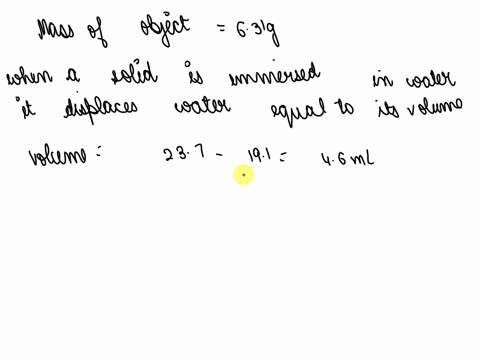 Mass of object = 6.31g
when a solid is immersed in water
it displaces water equal to its volume
volume = 23.7 - 19.1 = 4.6 mL